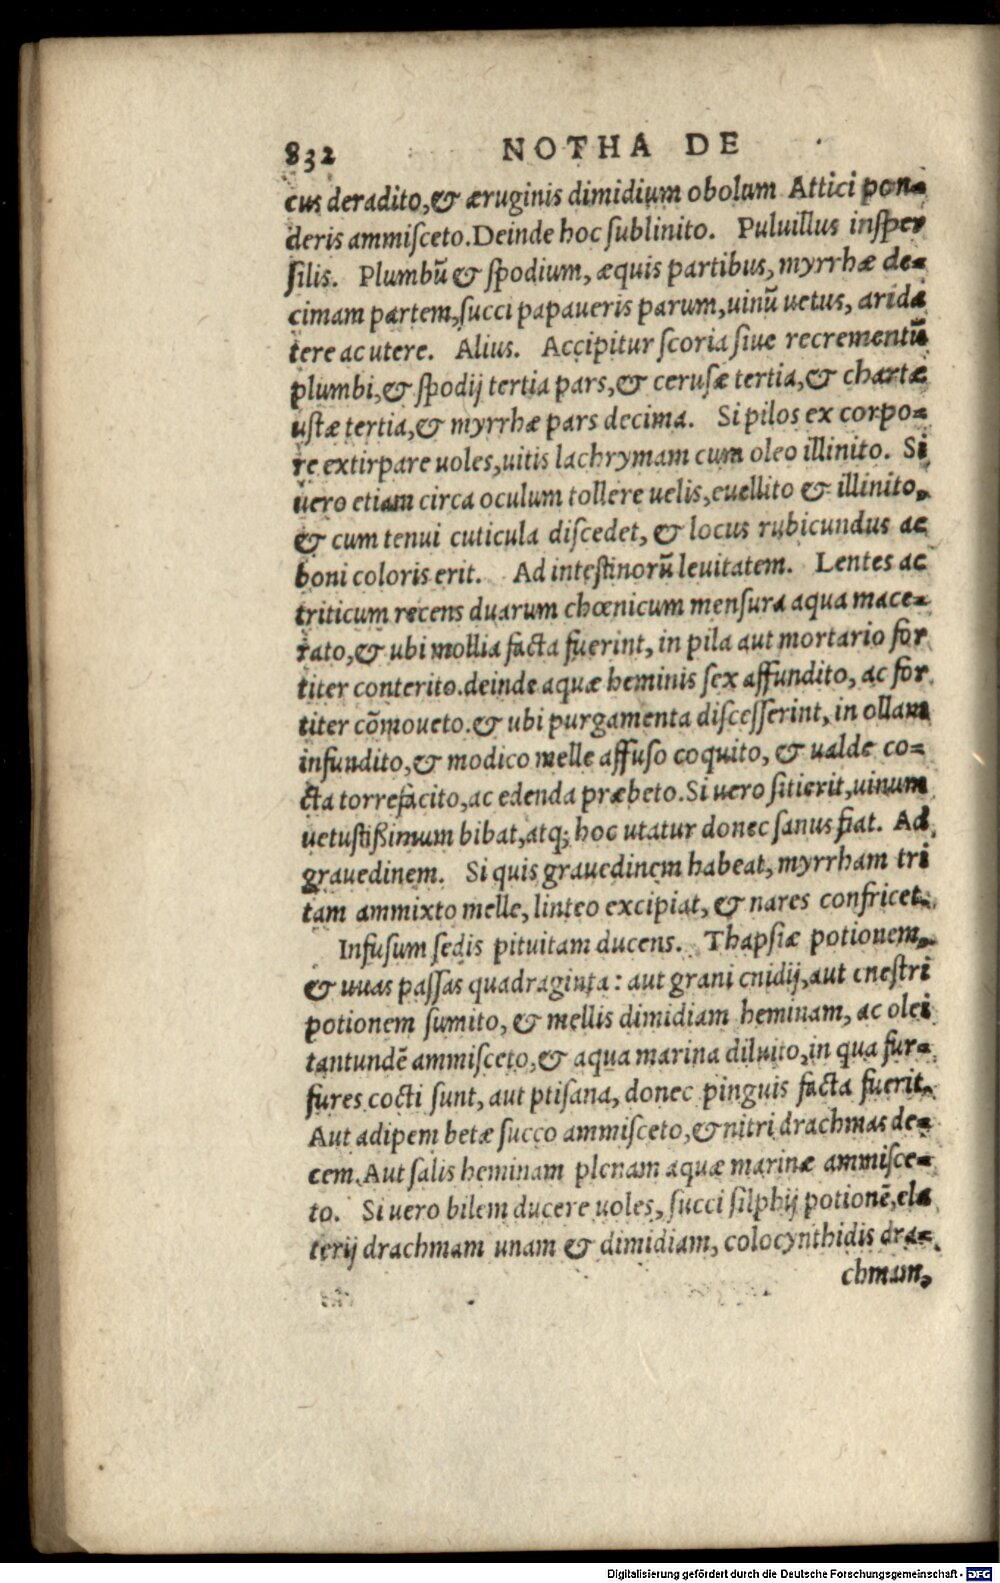 832 NOTHA DE
cus deradito,& æruginis dimidium obolum Attici pon=
deris ammisceto.Deinde hoc sublinito. Puluillus insper
silis. Plumbũ & spodium, æquis partibus, myrrhæ de=
cimam partem,succi papaueris parum,uinũ uetus, arida
tere ac utere. Alius. Accipitur scoria siue recrementũ
plumbi,& spodij tertia pars,& cerusæ tertia,& chartæ
ustæ tertia,& myrrhæ pars decima. Si pilos ex corpo=
re extirpare uoles,uitis lachrymam cum oleo illinito. Si
uero etiam circa oculum tollere uelis,euellito & illinito,
& cum tenui cuticula discedet, & locus rubicundus ac
boni coloris erit. Ad intestinorũ leuitatem. Lentes ac
triticum recens duarum chœnicum mensura aqua mace=
rato,& ubi mollia facta fuerint, in pila aut mortario for
titer conterito.deinde aquæ heminis sex affundito, ac for
titer cõmoueto.& ubi purgamenta discesserint, in ollam
infundito,& modico melle affuso coquito, & ualde co=
cta torrefacito,ac edenda præbeto.Si uero sitierit,uinum
uetustißimum bibat,atq; hoc utatur donec sanus fiat. Ad
grauedinem. Si quis grauedinem habeat, myrrham tri
tam ammixto melle, linteo excipiat, & nares confricet.
Infusum sedis pituitam ducens. Thapsiæ potionem,
& uuas passas quadraginta: aut grani cnidij,aut cnestri
potionem sumito, & mellis dimidiam heminam, ac olei
tantundẽ ammisceto,& aqua marina diluito,in qua fur=
fures cocti sunt, aut ptisana, donec pinguis facta fuerit.
Aut adipem betæ succo ammisceto,& nitri drachmas de=
cem.Aut salis heminam plenam aquæ marinæ ammisce=
to. Si uero bilem ducere uoles, succi silphij potionẽ,ela
terij drachmam unam & dimidiam, colocynthidis dra=
chmam,
Digitalisierung gefördert durch die Deutsche Forschungsgemeinschaft - DFG